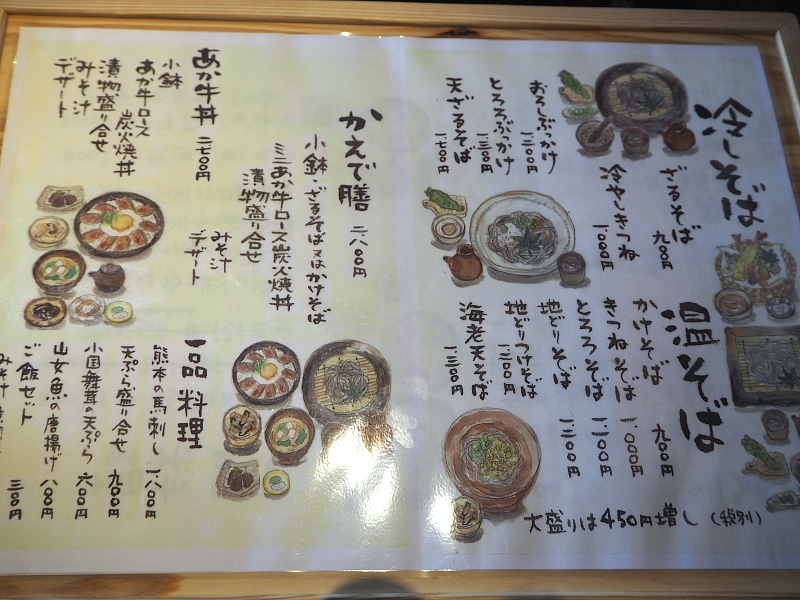 冷しそば
ざるそば 九〇〇円
冷やしきつね 一、〇〇〇円
おろしぶっかけ 一二〇〇円
とろろぶっかけ 一三〇〇円
天ざるそば 一七〇〇円
温そば
かけそば 九〇〇円
きつねそば 一、〇〇〇円
とろろそば 一、一〇〇円
地どりそば 一、二〇〇円
地どりつけそば 一三〇〇円
海老天そば 一三〇〇円
大盛りは450円増し (税別)
かえで膳 二八〇〇円
小鉢・ざるそば又はかけそば
ミニあか牛ロース炭火焼丼
漬物盛り合せ
みそ汁
デザート
あか牛丼 二七〇〇円
小鉢
あか牛ロース炭火焼丼
漬物盛り合せ
みそ汁
デザート
一品料理
熊本の馬刺し 一八〇〇円
天ぷら盛り合せ 九〇〇円
小国舞茸の天ぷら 六〇〇円
山女魚の唐揚げ 八〇〇円
ご飯セット 三五〇円
みそ汁